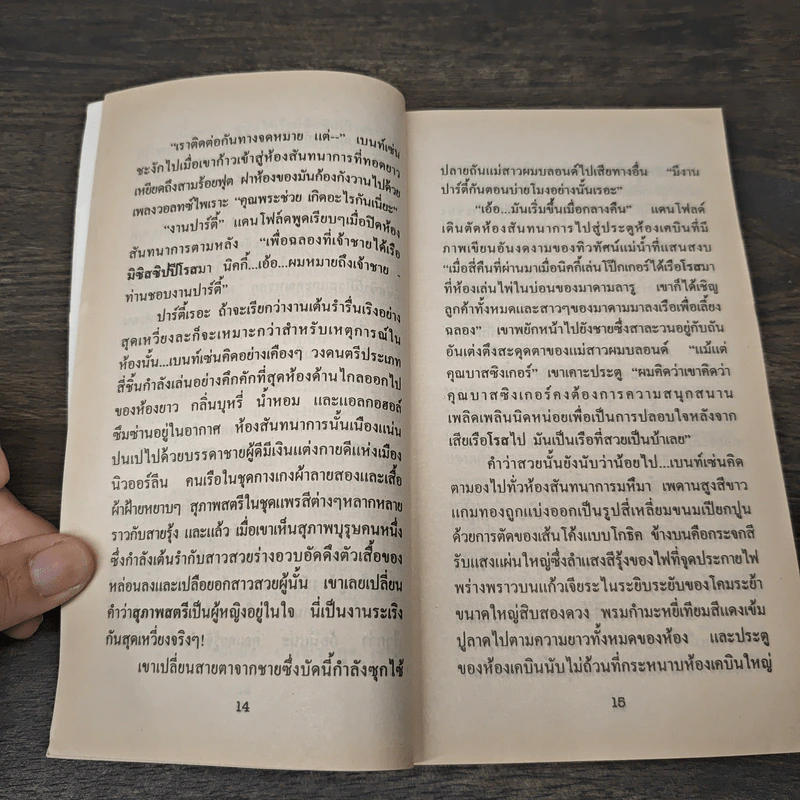 “เราติดต่อกันทางจดหมาย แต่--” เบนท์เซ่น
ชะงักไปเมื่อเขาก้าวเข้าสู่ห้องสันทนาการที่ทอดยาว
เหยียดถึงสามร้อยฟุต ฝาห้องของมันก้องกังวานไปด้วย
เพลงวอลทซ์ไพเราะ “คุณพระช่วย เกิดอะไรกันเนี่ยะ”
“งานปาร์ตี้” แดนโฟล์ดพูดเรียบๆเมื่อปิดห้อง
สันทนาการตามหลัง “เพื่อฉลองที่เจ้าชายได้เรือ
มิซิสซิปปีโรสมา นิคกี้...เอ้อ...ผมหมายถึงเจ้าชาย -
ท่านชอบงานปาร์ตี้”
ปาร์ตี้เรอะ ถ้าจะเรียกว่างานเต้นรำรื่นเริงอย่าง
สุดเหวี่ยงละก็จะเหมาะกว่าสำหรับเหตุการณ์ใน
ห้องนั้น...เบนท์เซ่นคิดอย่างเคืองๆ วงดนตรีประเภท
สี่ชิ้นกำลังเล่นอย่างคึกคักที่สุดห้องด้านไกลออกไป
ของห้องยาว กลิ่นบุหรี่ น้ำหอม และแอลกอฮอล์
ซึมซ่านอยู่ในอากาศ ห้องสันทนาการนั้นเนืองแน่น
ปนเปไปด้วยบรรดาชายผู้ดีมีเงินแต่งกายดีแห่งเมือง
นิวออร์ลีน คนเรือในชุดกางเกงผ้าลายสองและเสื้อ
ผ้าฝ้ายหยาบๆ สุภาพสตรีในชุดแพรสีต่างๆหลากหลาย
ราวกับสายรุ้ง และแล้ว เมื่อเขาเห็นสุภาพบุรุษคนหนึ่ง
ซึ่งกำลังเต้นรำกับสาวสวยร่างอวบอัดดึงตัวเสื้อของ
หล่อนลงและเปลือยอกสาวสวยผู้นั้น เขาเลยเปลี่ยน
คำว่าสุภาพสตรีเป็นผู้หญิงอยู่ในใจ นี่เป็นงานระเริง
กันสุดเหวี่ยงจริงๆ!
เขาเปลี่ยนสายตาจากชายซึ่งบัดนี้กำลังซุกไซ้
14
ปลายถันแม่สาวผมบลอนด์ไปเสียทางอื่น “มีงาน
ปาร์ตี้กันตอนบ่ายโมงอย่างนั้นเรอะ”
“เอ้อ...มันเริ่มขึ้นเมื่อกลางคืน” แดนโฟลด์
เดินตัดห้องสันทนาการไปสู่ประตูห้องเคบินที่มี
ภาพเขียนอันงดงามของทิวทัศน์แม่น้ำที่แสนสงบ
“เมื่อสี่คืนที่ผ่านมาเมื่อนิคกี้เล่นโป๊กเกอร์ได้เรือโรสมา
ที่ห้องเล่นไพ่ในบ่อนของมาดามลารู เขาก็ได้เชิญ
ลูกค้าทั้งหมดและสาวๆของมาดามมาลงเรือเพื่อเลี้ยง
ฉลอง” เขาพยักหน้าไปยังชายซึ่งสาละวนอยู่กับถัน
อันเต่งตึงสะดุดตาของแม่สาวผมบลอนด์ “แม้แต่
คุณบาสซิงเกอร์” เขาเคาะประตู “ผมคิดว่าเขาคิดว่า
คุณบาสซิงเกอร์คงต้องการความสนุกสนาน
เพลิดเพลินนิดหน่อยเพื่อเป็นการปลอบใจหลังจาก
เสียเรือโรสไป มันเป็นเรือที่สวยเป็นบ้าเลย”
คำว่าสวยนั้นยังนับว่าน้อยไป...เบนท์เซ่นคิด
ตามองไปทั่วห้องสันทนาการมหึมา เพดานสูงสีขาว
แถมทองถูกแบ่งออกเป็นรูปสี่เหลี่ยมขนมเปียกปูน
ด้วยการตัดของเส้นโค้งแบบโกธิค ข้างบนคือกระจกสี
รับแสงแผ่นใหญ่ซึ่งลำแสงสีรุ้งของไฟที่จุดประกายไฟ
พร่างพราวบนแก้วเจียระไนระยิบระยับของโคมระย้า
ขนาดใหญ่สิบสองดวง พรมกำมะหยี่เทียมสีแดงเข้ม
ปูลาดไปตามความยาวทั้งหมดของห้อง และประตู
ของห้องเคบินนับไม่ถ้วนที่กระหนาบห้องเคบินใหญ่
15